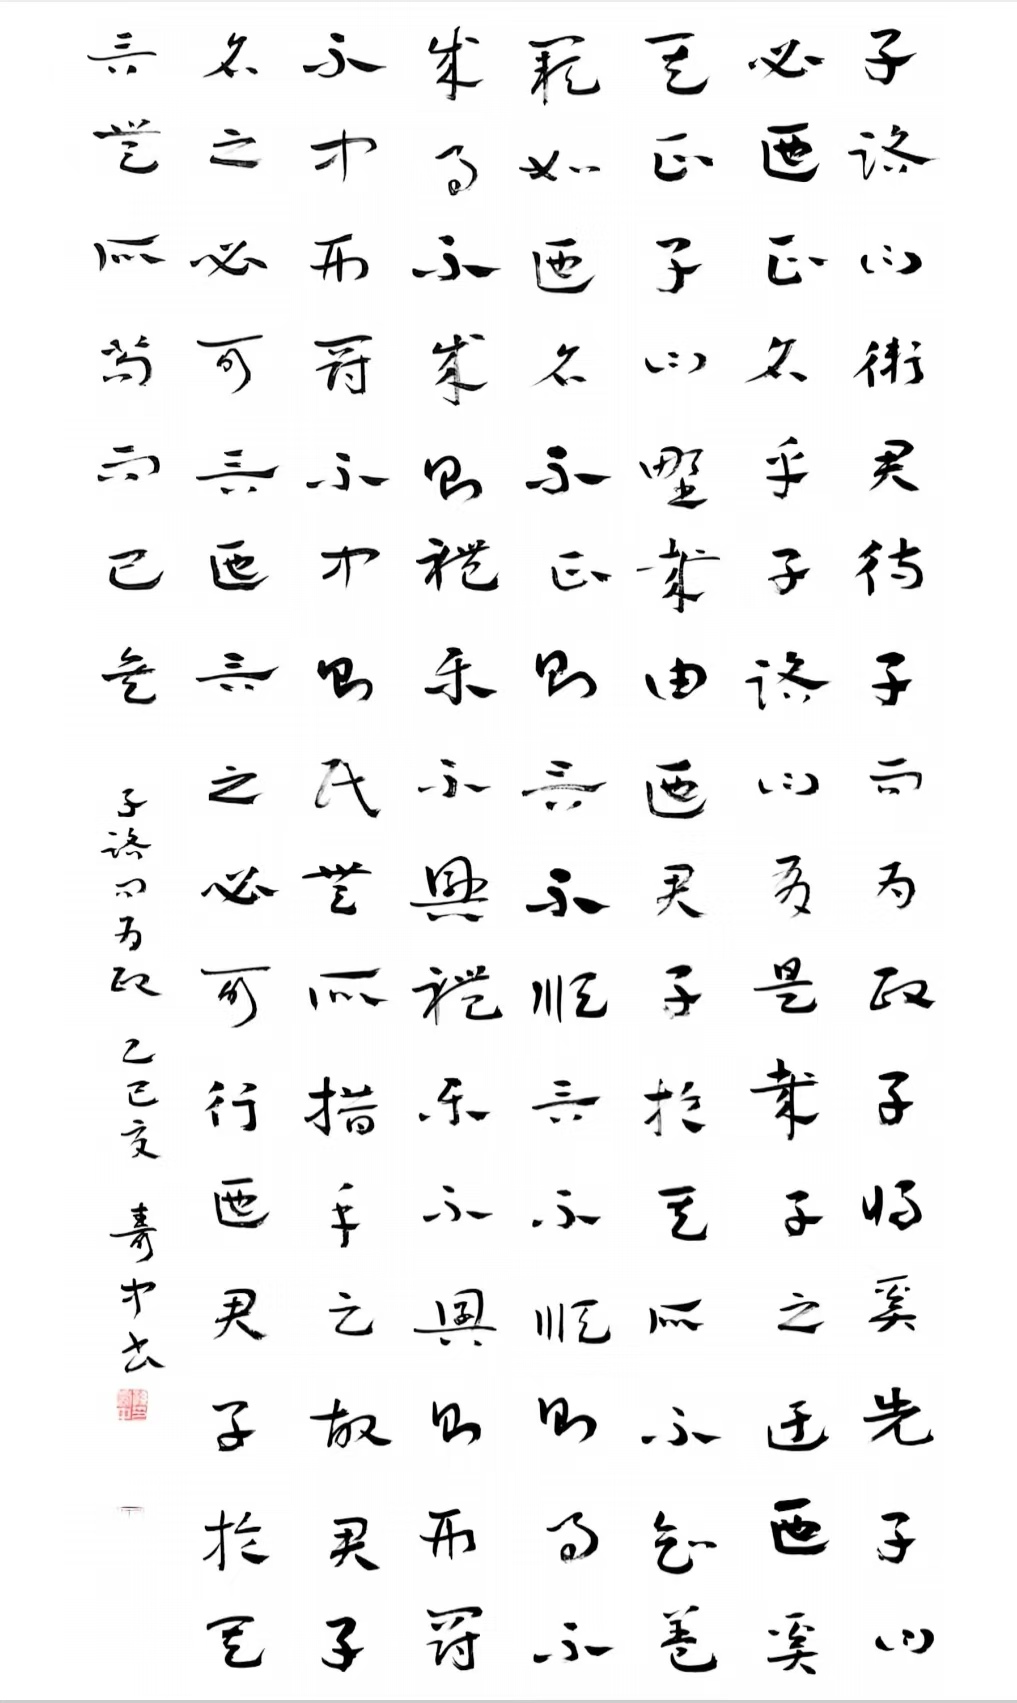 子路曰衛君待子而为政子将奚先子曰
必也正名乎子路曰有是哉子之迂也奚
其正子曰野哉由也君子於其所不知蓋
闕如也名不正则言不順言不順则事不
成事不成则禮乐不興禮乐不興则刑罰
不中刑罰不中则民無所措手足故君子
名之必可言也言之必可行也君子於其
言無所苟而已矣
子路问为政 乙巳夏 壽中书